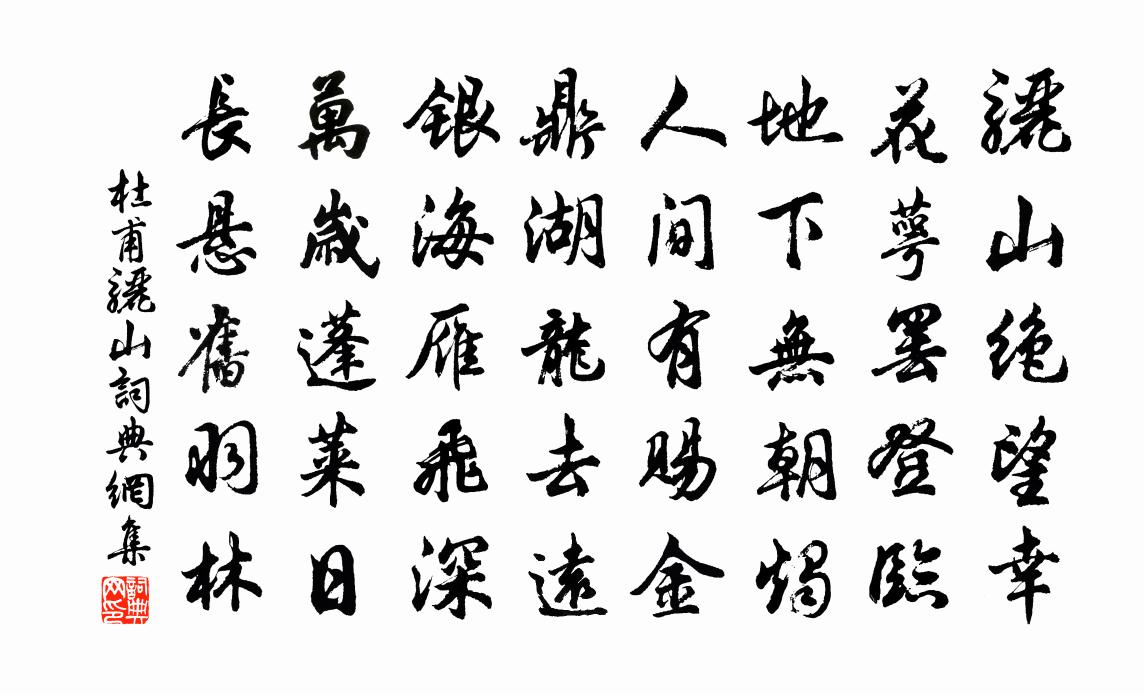 驪山絶望幸
花萼罷登臨
地下無朝燭
人間有賜金
鼎湖龍去遠
銀海雁飛深
萬歲蓬萊日
長懸舊羽林
杜甫驪山詞典網集